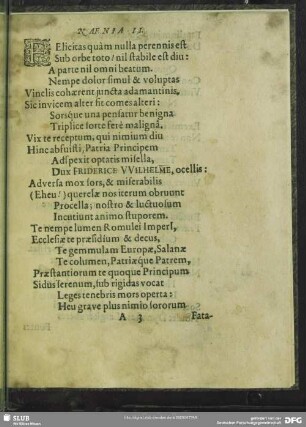 NAENIA II.
FElicitas quàm nulla perennis est
Sub orbe toto / nil stabile est diu:
A parte nil omni beatum.
Nempe dolor simul & voluptas
Vinclis cohærent juncta adamantinis,
Sic invicem alter fit comes alteri:
Sorsque una pensatur benigna
Triplice sorte ferè malignâ.
Vix te receptum, qui nimium diu
Hinc absuisti, Patria Principem
Adspexit optatis misella,
DUX FRIDERICE VVILHELME, ocellis:
Adversa mox sors, & miserabilis
(Eheu!) querelæ nos iterum obruunt
Procella; nostro & luctuosum
Incutiunt animo stuporem.
Te nempe lumen Romulei Imperî,
Ecclesiæ te præsidium & decus,
Te gemmulam Europæ, Salanæ
Te columen, Patriæque Patrem,
Præstantiorum te quoque Principum
Sidus serenum, sub rigidas vocat
Leges tenebris mors operta:
Heu grave plus nimio sororum
A 3 Fata-
SLUB
Wir führen Wissen.
DFG